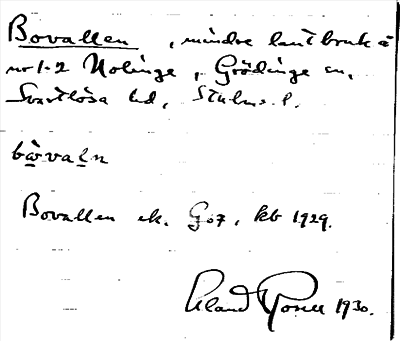 Bovallen, mindre lantbruk å
nr 1-2 Uolinge, Grödinge sn,
Svartlösa hd, Sthlms l.
bò̤vaḻn
Bovallen ek. G 07, kb 1929.
Roland 1930.